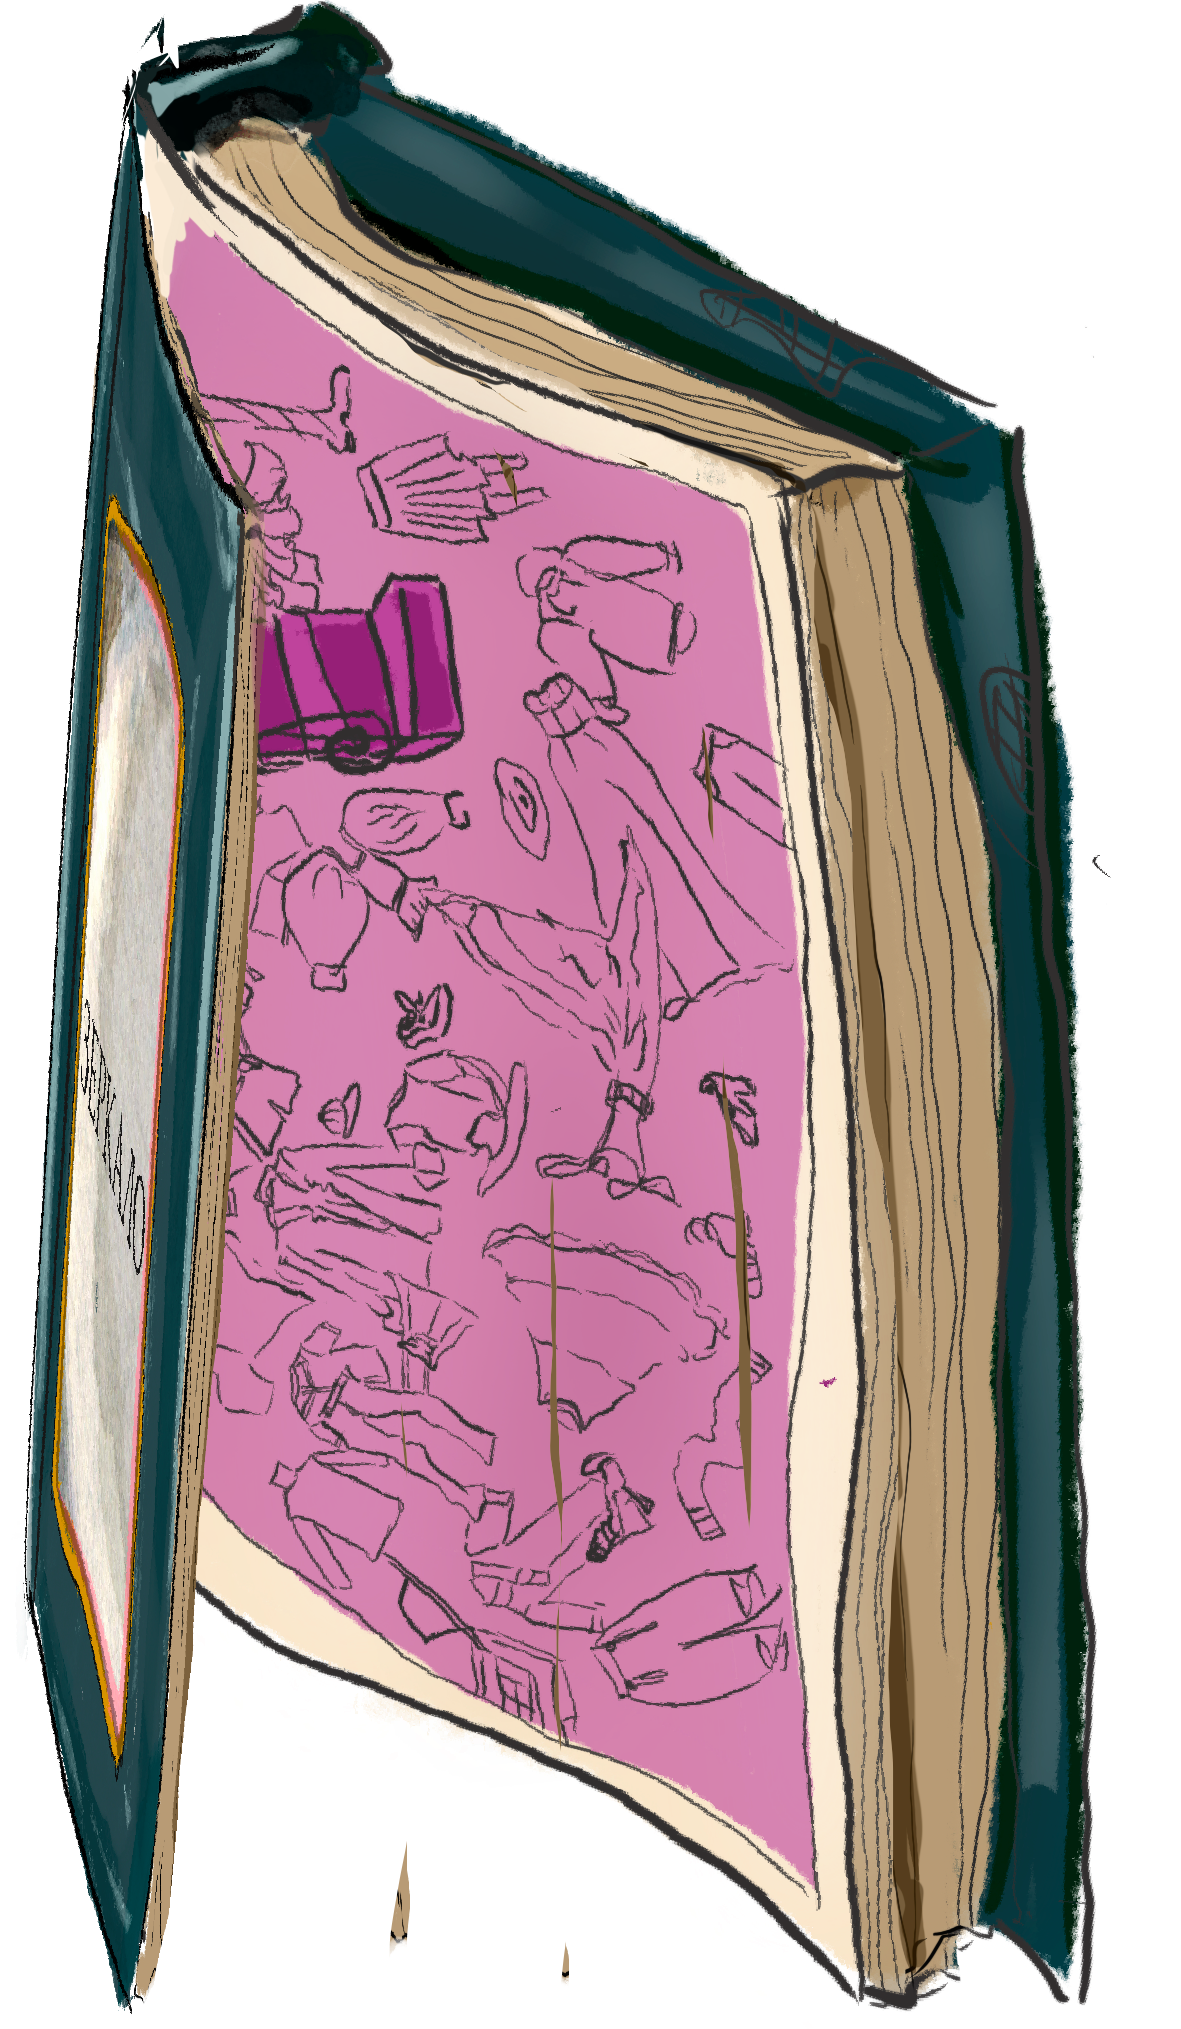 ЗЕРКАЛО